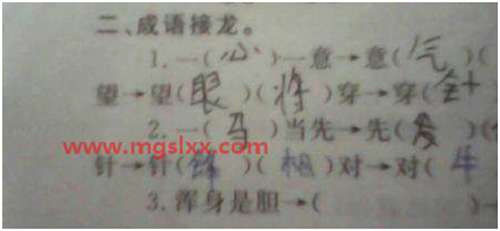 二、成语接龙。
1. 一(心)一意→意(气)(
望→望(眼)(将)穿→穿(针
2. 一(马)当先→先(发)(
www.mgslxx.com
针→针(锋)(相)对→对(牛
3. 浑身是胆→(